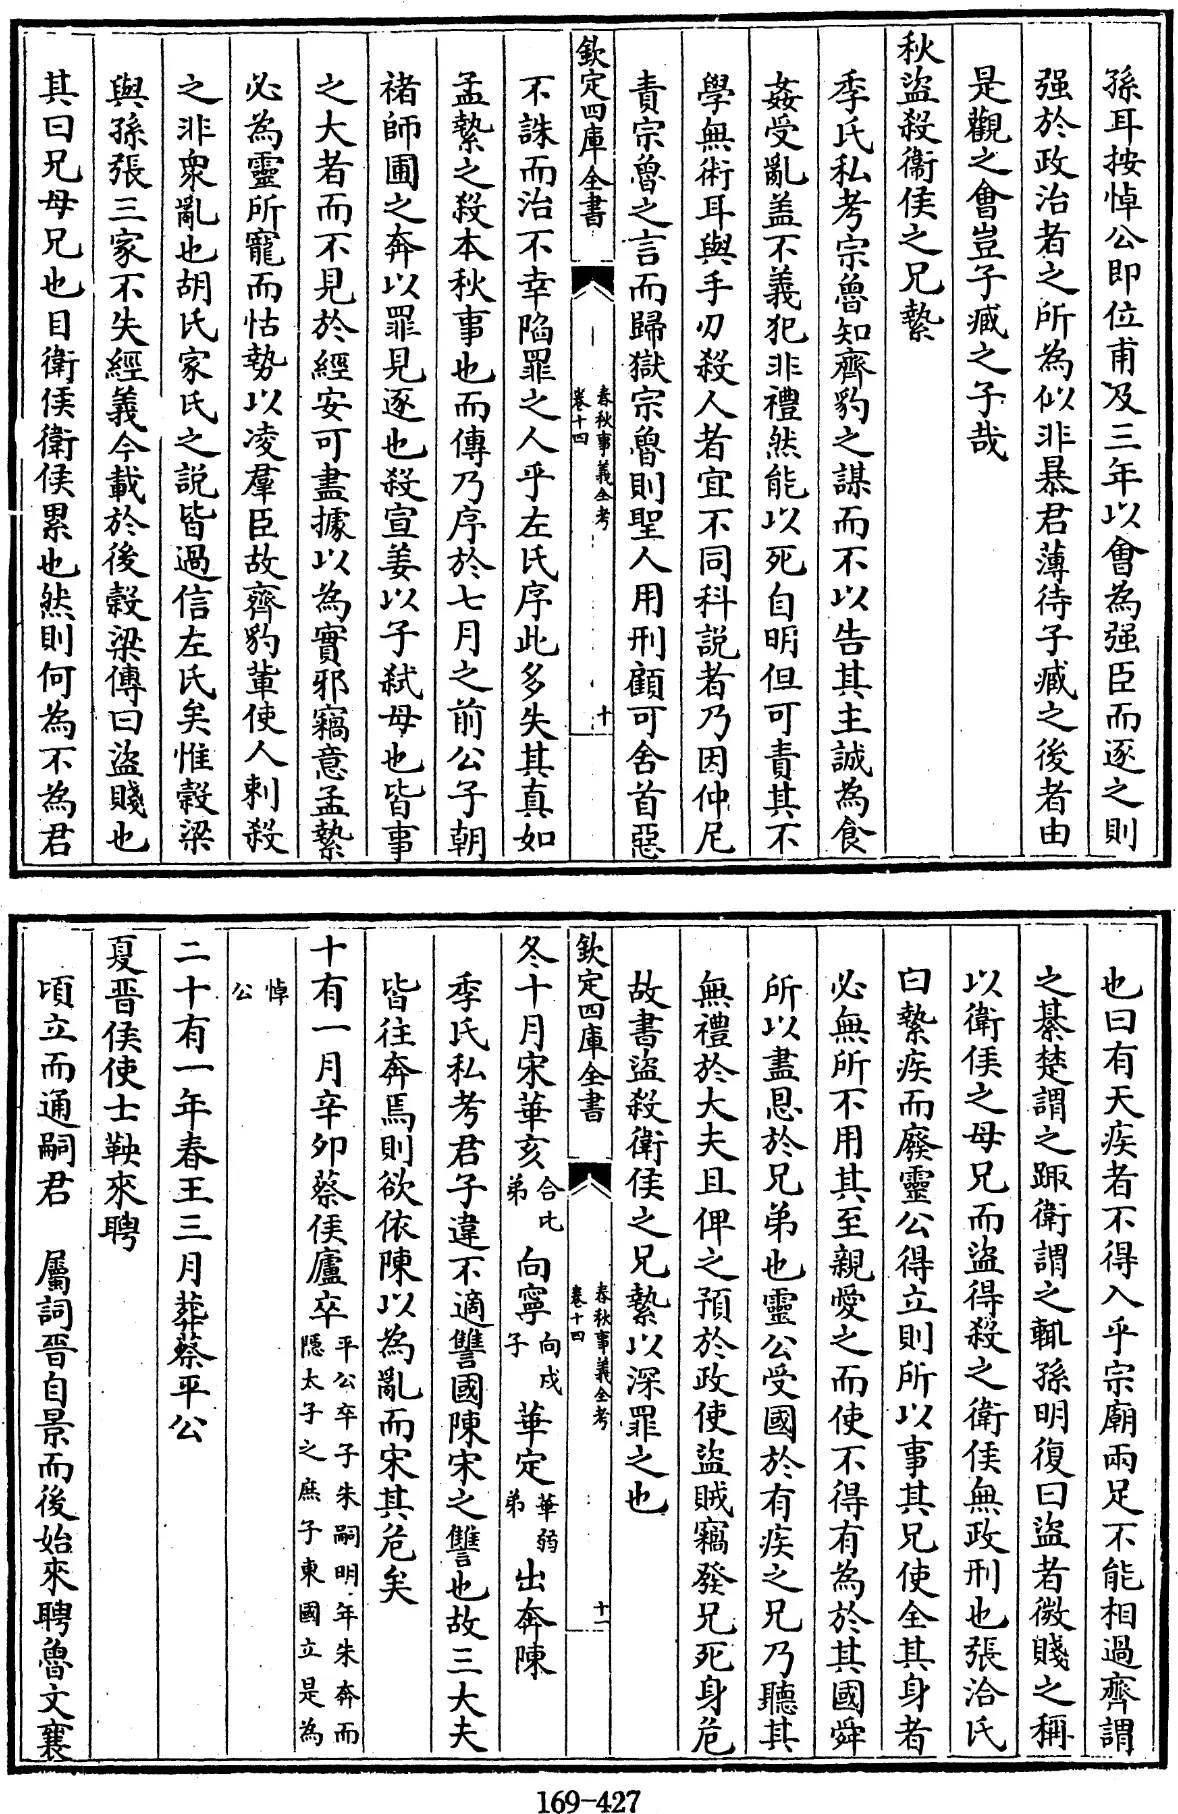 孫耳按悼公即位甫及三年以會為强臣而逐之則
强於政治者之所為似非暴君薄待子臧之後者由
是觀之會豈子臧之子哉
秋盜殺衞侯之兄縶
季氏私考宗魯知齊豹之謀而不以告其主誠為食
姦受亂盖不義犯非禮然能以死自明但可責其不
學無術耳與手刃殺人者宜不同科説者乃因仲尼
責宗魯之言而歸獄宗魯則聖人用刑顧可舍首惡
欽定四庫全書
春秋事義全考
卷十四
十
不誅而治不幸陷罪之人乎左氏序此多失其真如
孟縶之殺本秋事也而傳乃序於七月之前公子朝
褚師圃之奔以罪見逐也殺宣姜以子弑母也皆事
之大者而不見於經安可盡據以為實邪竊意孟縶
必為靈所寵而怙勢以凌羣臣故齊豹軰使人剌殺
之非衆亂也胡氏家氏之説皆過信左氏矣惟榖梁
與孫張三家不失經義今載於後榖梁傳曰盜賤也
其曰兄母兄也目衛侯衛侯累也然則何為不為君
也曰有天疾者不得入乎宗廟兩足不能相過齊謂
之綦楚謂之踙衛謂之輒孫明復曰盜者微賤之稱
以衛侯之母兄而盜得殺之衛侯無政刑也張洽氏
曰縶疾而廢靈公得立則所以事其兄使全其身者
必無所不用其至親愛之而使不得有為於其國舜
所以盡恩於兄弟也靈公受國於有疾之兄乃聽其
無禮於大夫且俾之預於政使盜賊竊發兄死身危
故書盜殺衛侯之兄縶以深罪之也
欽定四庫全書
春秋事義全考
卷十四
十一
冬十月宋華亥合比弟向寧向戌子華定華弱弟出奔陳
季氏私考君子違不適讐國陳宋之讐也故三大夫
皆往奔焉則欲依陳以為亂而宋其危矣
十有一月辛卯蔡侯廬卒平公卒子朱嗣明年朱奔而隱太子之庶子東國立是為
悼公
二十有一年春王三月葬蔡平公
夏晋侯使士鞅來聘
頃立而通嗣君　屬詞晋自景而後始來聘魯文襄
169-427